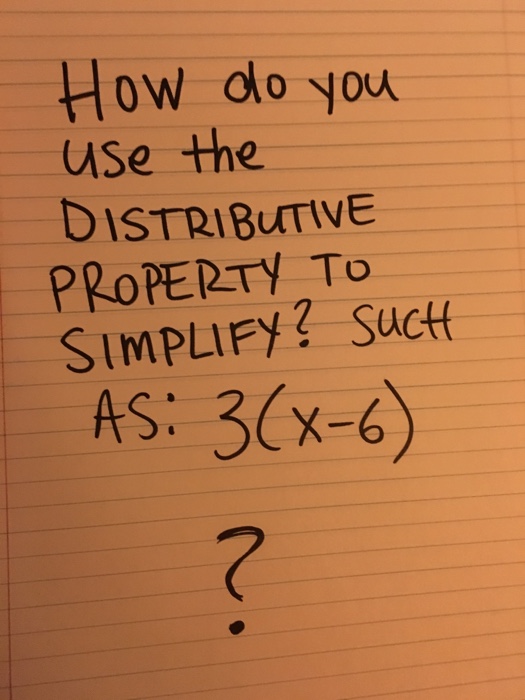 How do you
use the
DISTRIBUTIVE
PROPERTY TO
SIMPLIFY? SUCH
AS: 3(x-6)
?